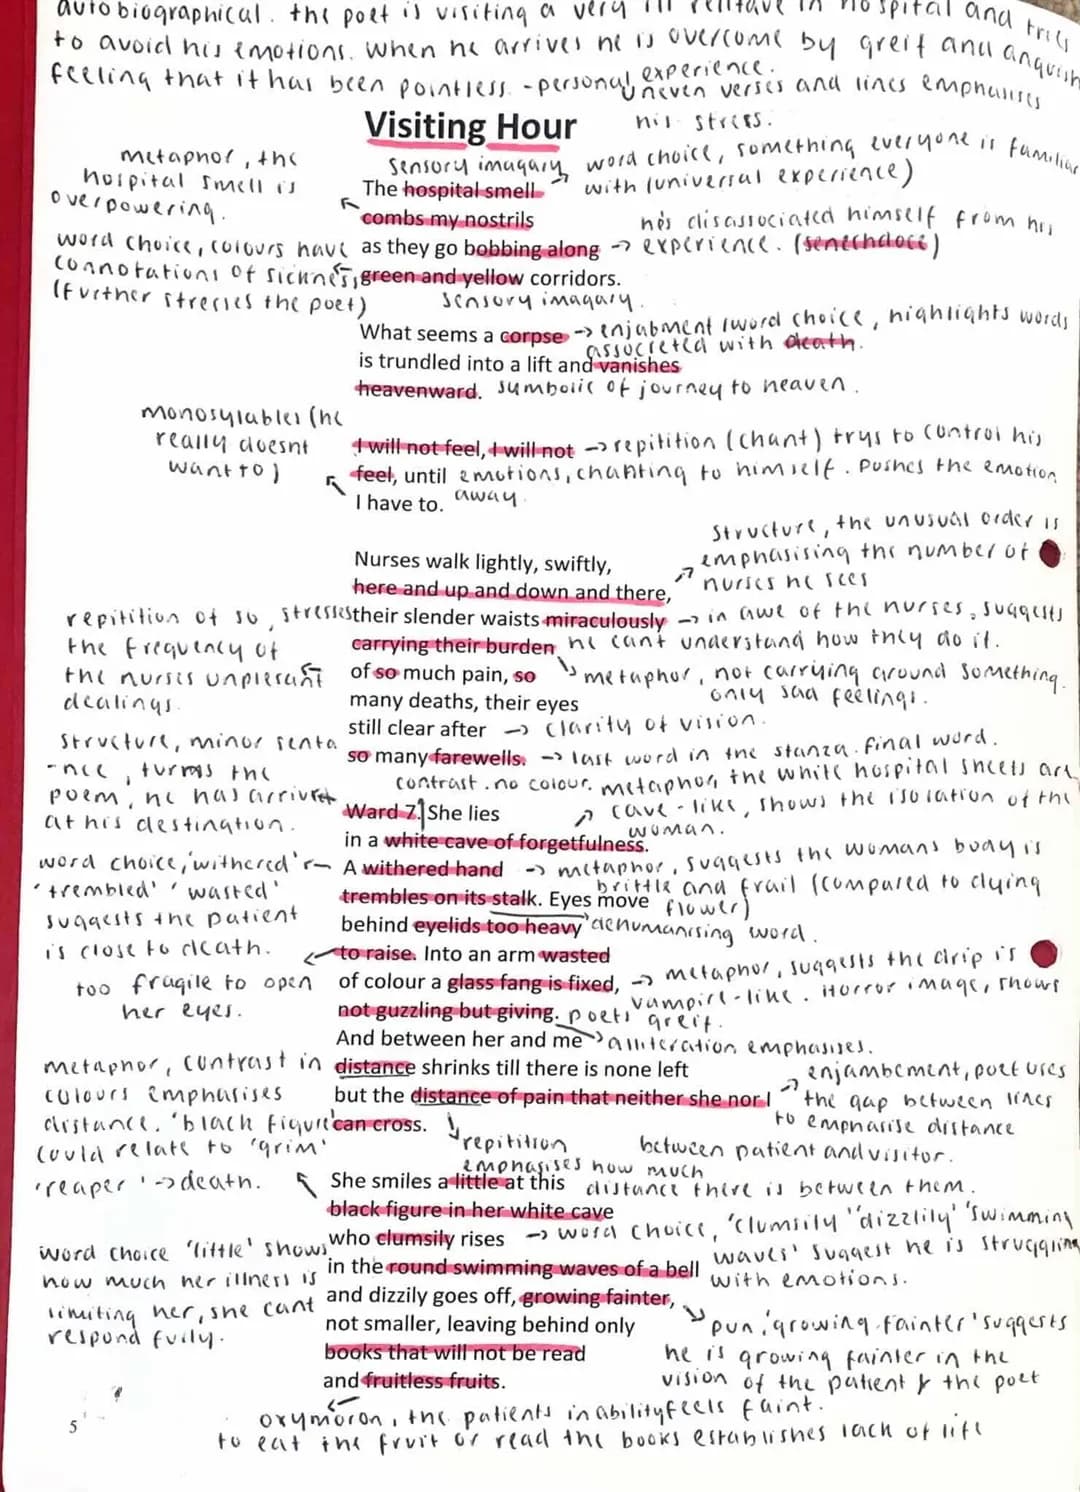 autobiographical. the poet is visiting a very ill relitave in hospital and tries
to avoid his emotions. when he arrives he is overcome by greif and anguish
feeling that it has been pointless. -personal experience.
uneven verses and lines emphasises
his stress.
Visiting Hour
metaphor, the
hospital smell is
overpowering.
sensory imagary
word choice, something everyone is familiar
with (universal experience)
The hospital smell
combs my nostrils
he's disassociated himself from his
experience. (senechdoce)
as they go bobbing along
word choice, colours have
connotations of sickness,
(further stresses the poet)
green and yellow corridors.
sensory imagary.
What seems a corpse
enjabment (word choice, highlights words
assocreted with death.
is trundled into a lift and vanishes
heavenward.
symbolic of journey to heaven.
monosylables (he
really doesnt
want to)
I will not feel, I will not
repitition (chant) trys to control his
feel, until
emotions, chanting to himself. pushes the emotion
away.
I have to.
structure, the unusual order is
emphasising the number of
nurses he sees
Nurses walk lightly, swiftly,
here and up and down and there,
repitition of so, stresses
the frequency of
the nurses unplesant
dealings.
their slender waists miraculously
in awe of the nurses, suggests
he cant understand how they do it.
carrying their burden
of so much pain, so
metaphor, not carrying around something.
only sad feelings.
many deaths, their eyes
still clear after
clarity of vision.
so many farewells.
last word in the stanza. final word.
structure, minor senta
-nce, turns the
poem, he has arrived
at his destination.
contrast. no colour. metaphor, the white hospital sheets are
cave-like, shows the isolation of the
woman.
Ward 7. She lies
in a white cave of forgetfulness.
word choice, 'withered'
'trembled' 'wasted'
suggests the patient
is close to death.
A withered hand
metaphor, suggests the womans body is
brittle and frail (compared to dying
flower)
trembles on its stalk. Eyes move
behind eyelids too heavy
dehumanising word.
to raise. Into an arm wasted
too fragile to open
her eyes.
of colour a glass fang is fixed,
metaphor, suggests the drip is
vampire-like. Horror image, shows
poets greif.
not guzzling but giving.
alliteration emphasises.
And between her and me
distance shrinks till there is none left
metaphor, contrast in
colours emphasises
distance. 'black figure'
could relate to 'grim'
'reaper' -> death.
but the distance of pain that neither she nor I
enjambement, poet uses
the gap between lines
to emphasise distance
between patient and visitor.
can cross.
repitition
emphasises how much
distance there is between them.
She smiles a little at this
black figure in her white cave
who clumsily rises
word choice, 'clumsily' 'dizzlily' 'swimming
waves' suggest he is struggling
with emotions.
word choice 'little' shows
how much her illness is
limiting her, she cant
respond fully.
in the round swimming waves of a bell
and dizzily goes off, growing fainter,
not smaller, leaving behind only
pun, 'growing fainter' suggests
he is growing fainter in the
vision of the patient & the poet
feels faint.
books that will not be read
and fruitless fruits.
oxymoron, the patients inability
to eat the fruit or read the books establishes lack of life
5